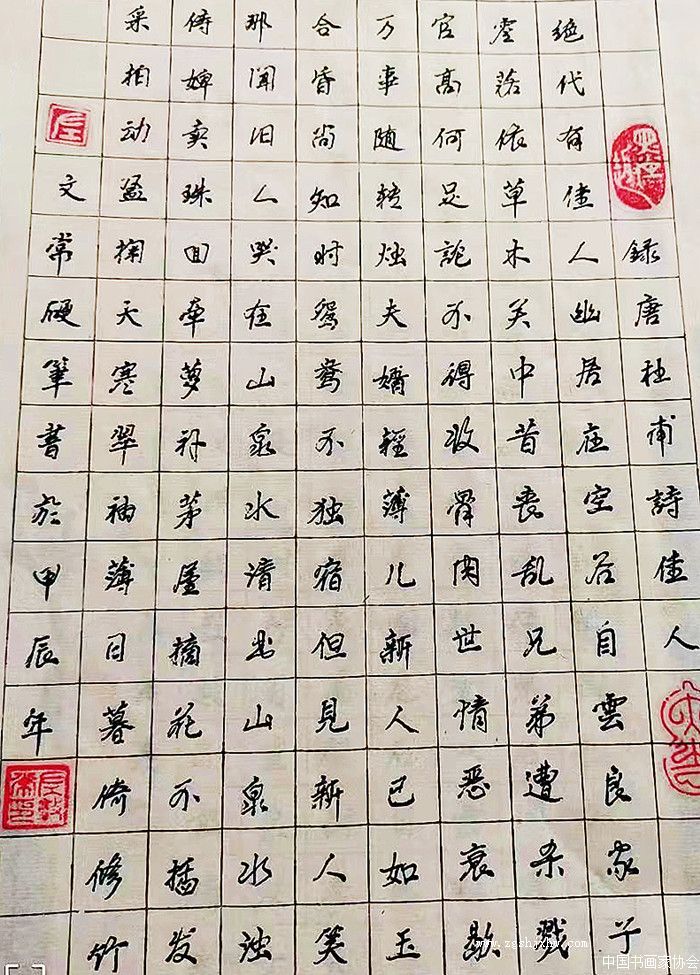 錄唐杜甫詩佳人
绝代有佳人幽居在空谷自雲良家子
零落依草木关中昔丧乱兄弟遭杀戮
官高何足論不得收骨肉世情恶衰歇
万事随转烛夫婿輕薄儿新人已如玉
合昏尚知时鸳鸯不独宿但見新人笑
那闻旧人哭在山泉水清出山泉水浊
侍婢卖珠回牵萝补茅屋摘花不插发
采柏动盈掬天寒翠袖薄日暮倚修竹
文常硬筆書於甲辰年
www.zgshjxhw.com
中国书画家协会